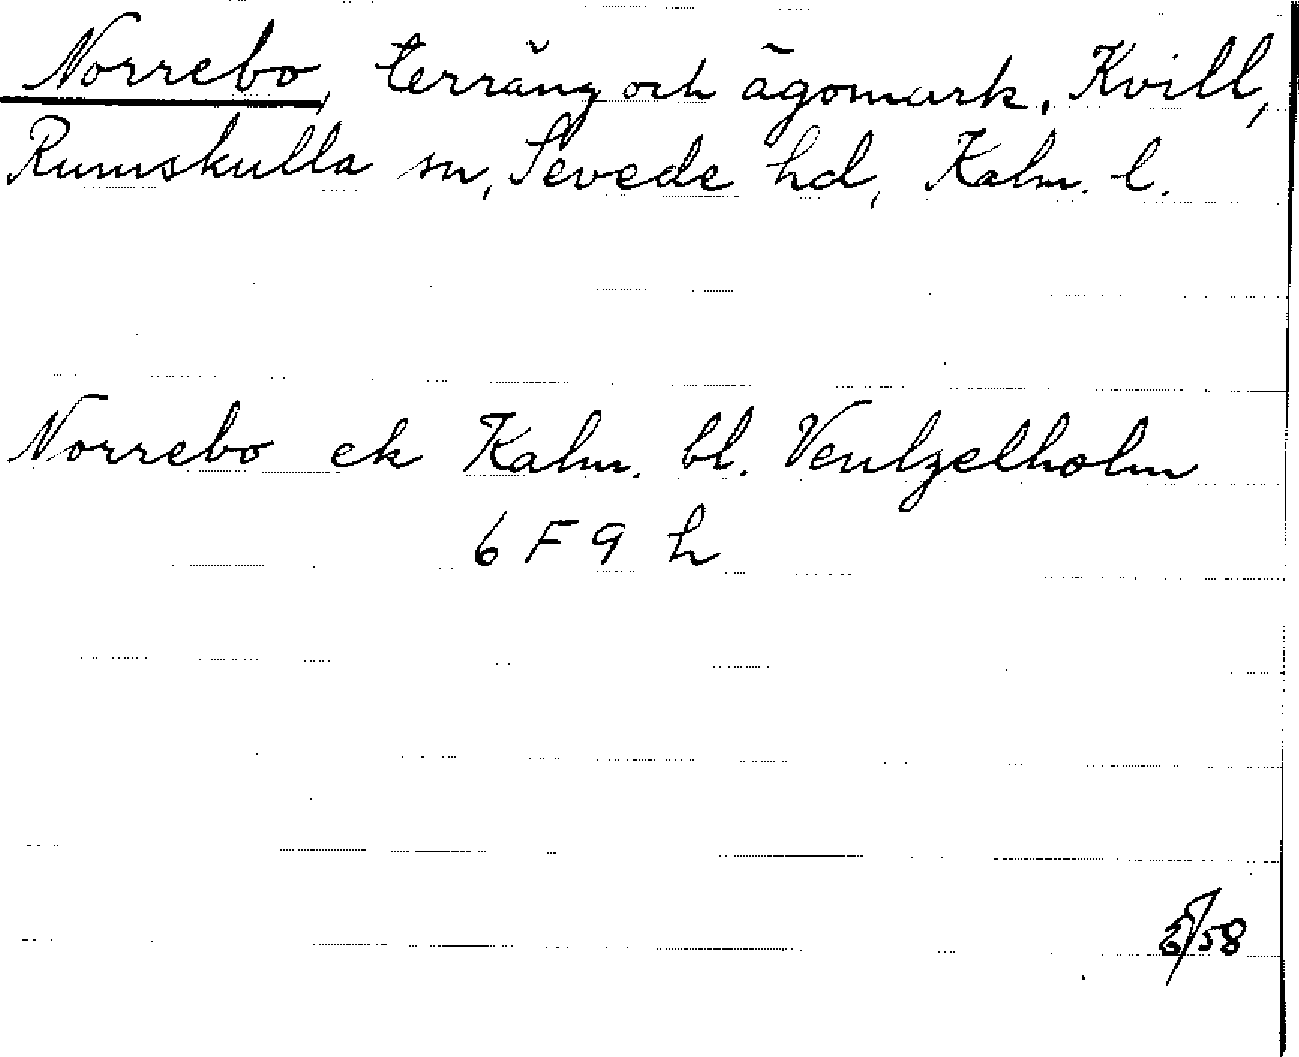 Norrebo, terräng och ägomark, Kvill,
Rumskulla sn, Sevede hd, Kalm. l.
Norrebo ek Kalm. bl. Ventzelholm
6 F 9 h
/58